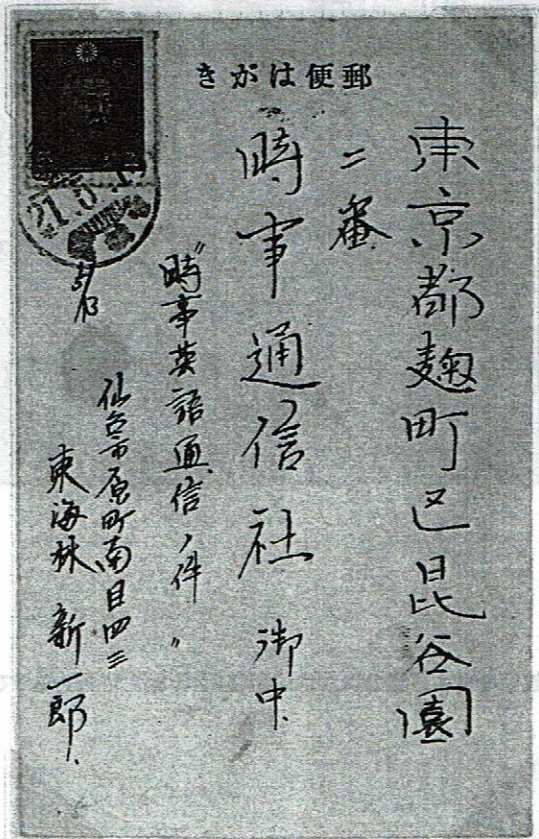 きがは便郵
東京都麹町区昆谷園
二番
時事通信社 御中
"時事英語通信ノ件"
仙台市原町南目四三
東海林 新一郎
5/13
21.5.1